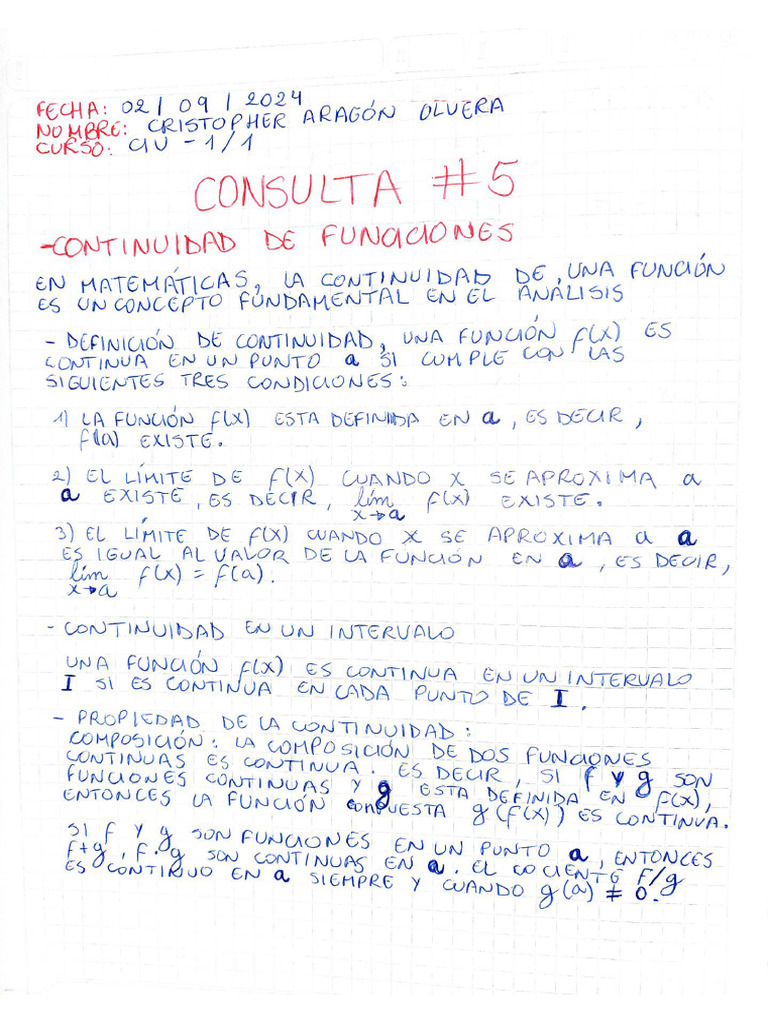 FECHA: 02 / 09 / 2024
NOMBRE: CRISTOPHER ARAGÓN OLVERA
CURSO: CIV - 1/1
CONSULTA #5
- CONTINUIDAD DE FUNCIONES
EN MATEMÁTICAS, LA CONTINUIDAD DE UNA FUNCIÓN
ES UN CONCEPTO FUNDAMENTAL EN EL ANÁLISIS
- DEFINICIÓN DE CONTINUIDAD, UNA FUNCIÓN f(x) ES
CONTINUA EN UN PUNTO a SI CUMPLE CON LAS
SIGUIENTES TRES CONDICIONES:
1) LA FUNCIÓN f(x) ESTA DEFINIDA EN a, ES DECIR,
f(a) EXISTE.
2) EL LÍMITE DE f(x) CUANDO X SE APROXIMA a
a EXISTE, ES DECIR, lím f(x) EXISTE.
x→a
3) EL LÍMITE DE f(x) CUANDO X SE APROXIMA a a
ES IGUAL AL VALOR DE LA FUNCIÓN EN a, ES DECIR,
lím f(x) = f(a).
x→a
- CONTINUIDAD EN UN INTERVALO
UNA FUNCIÓN f(x) ES CONTINUA EN UN INTERVALO
I SI ES CONTINUA EN CADA PUNTO DE I.
- PROPIEDAD DE LA CONTINUIDAD:
COMPOSICIÓN: LA COMPOSICIÓN DE DOS FUNCIONES
CONTINUAS ES CONTINUA. ES DECIR, SI f y g SON
FUNCIONES CONTINUAS Y g ESTA DEFINIDA EN f(x),
ENTONCES LA FUNCIÓN COMPUESTA g(f(x)) ES CONTINUA.
SI f Y g SON FUNCIONES EN UN PUNTO a, ENTONCES
f+g, f·g SON CONTINUAS EN a. EL COCIENTE f/g
ES CONTINUO EN a SIEMPRE Y CUANDO g(a) ≠ 0.